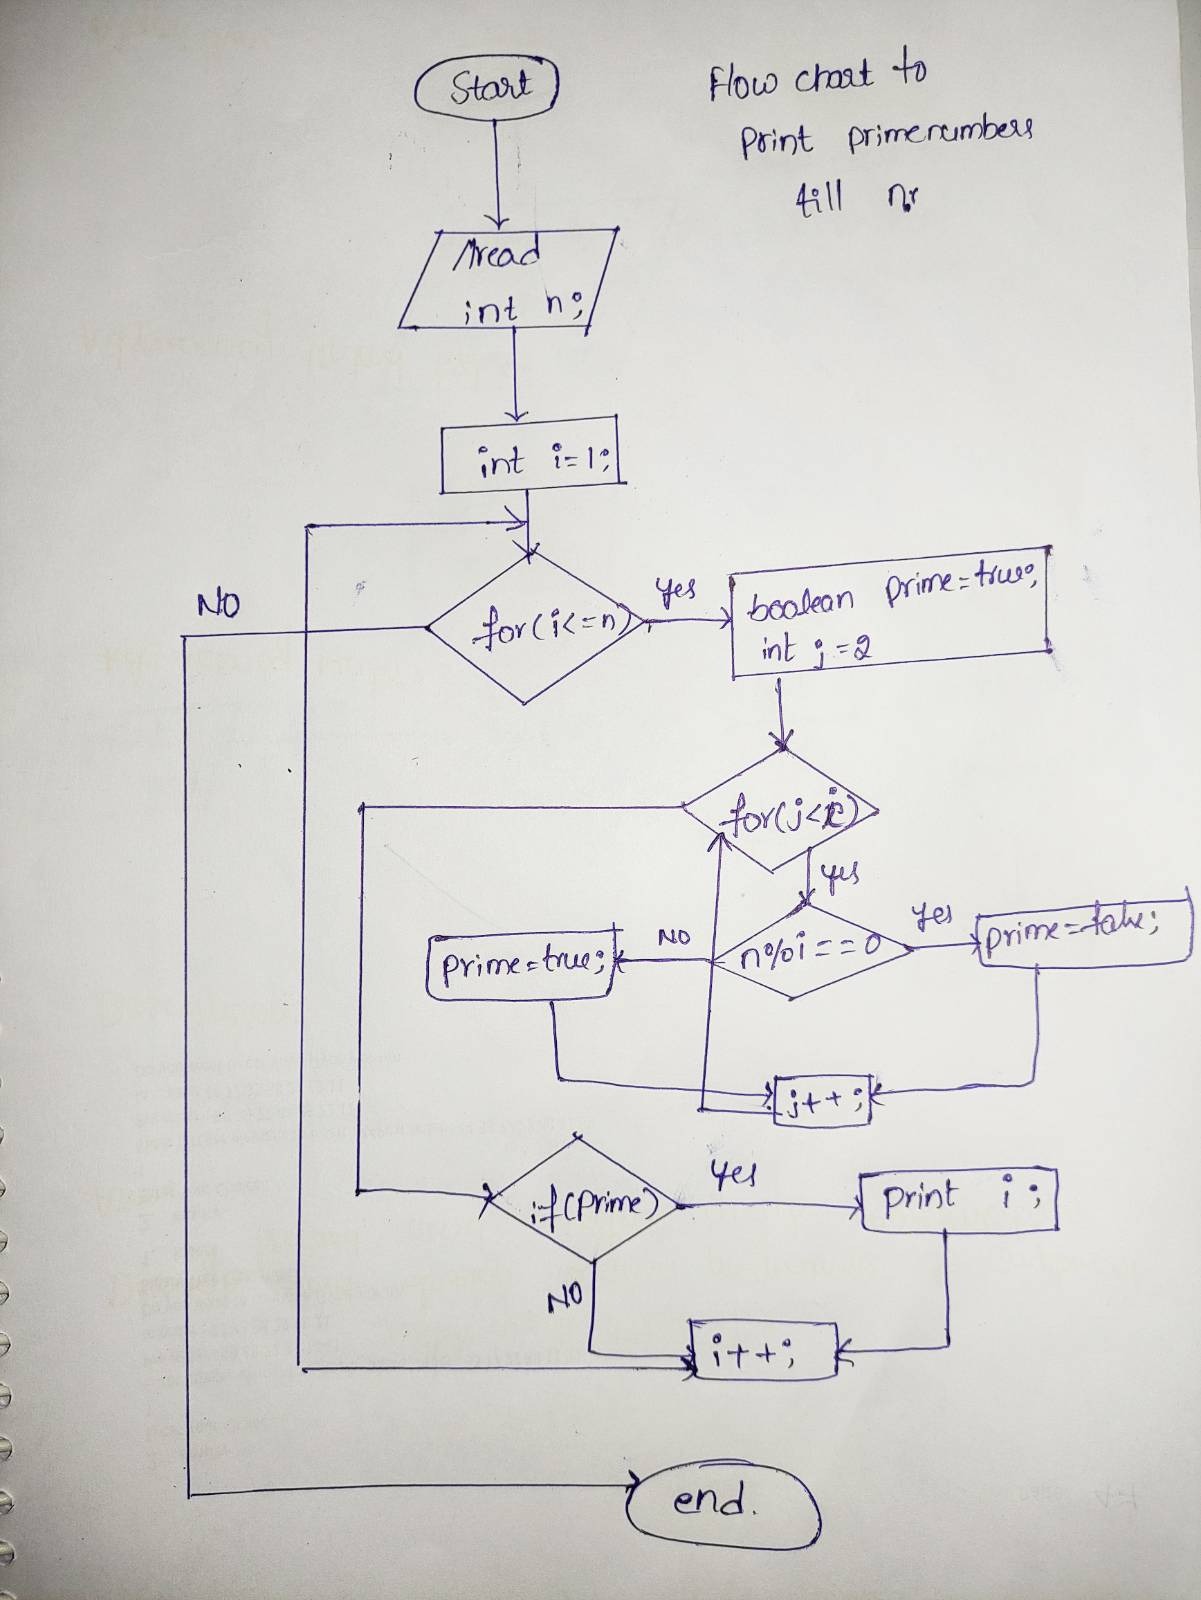 Start
Flow chart to
Print primenumbers
till n
read
int n;
int i=1;
NO
for(i<=n)
Yes
boolean prime=true;
int j=2
for(j<i)
Yes
Yes
prime=false;
NO
n%i==0
prime=true;
j++;
if(Prime)
Yes
Print i;
NO
i++;
end.